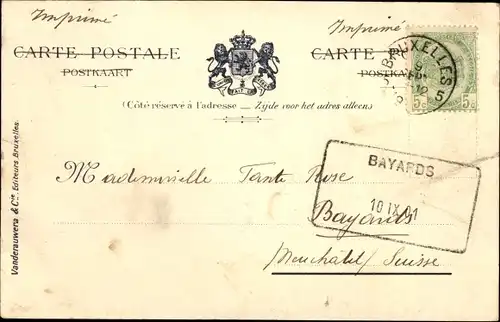 Imprimé Imprimé
CARTE POSTALE CARTE
POSTKAART
BRUXELLES 5
5c 5c
(Côté réservé à l'adresse _ Zijde voor het adres alleen)
Mademoiselle Tante Rose
Bayards
Neuchâtel / Suisse
BAYARDS
10 IX 01
Vanderauwera & Cie, Editeurs Bruxelles.